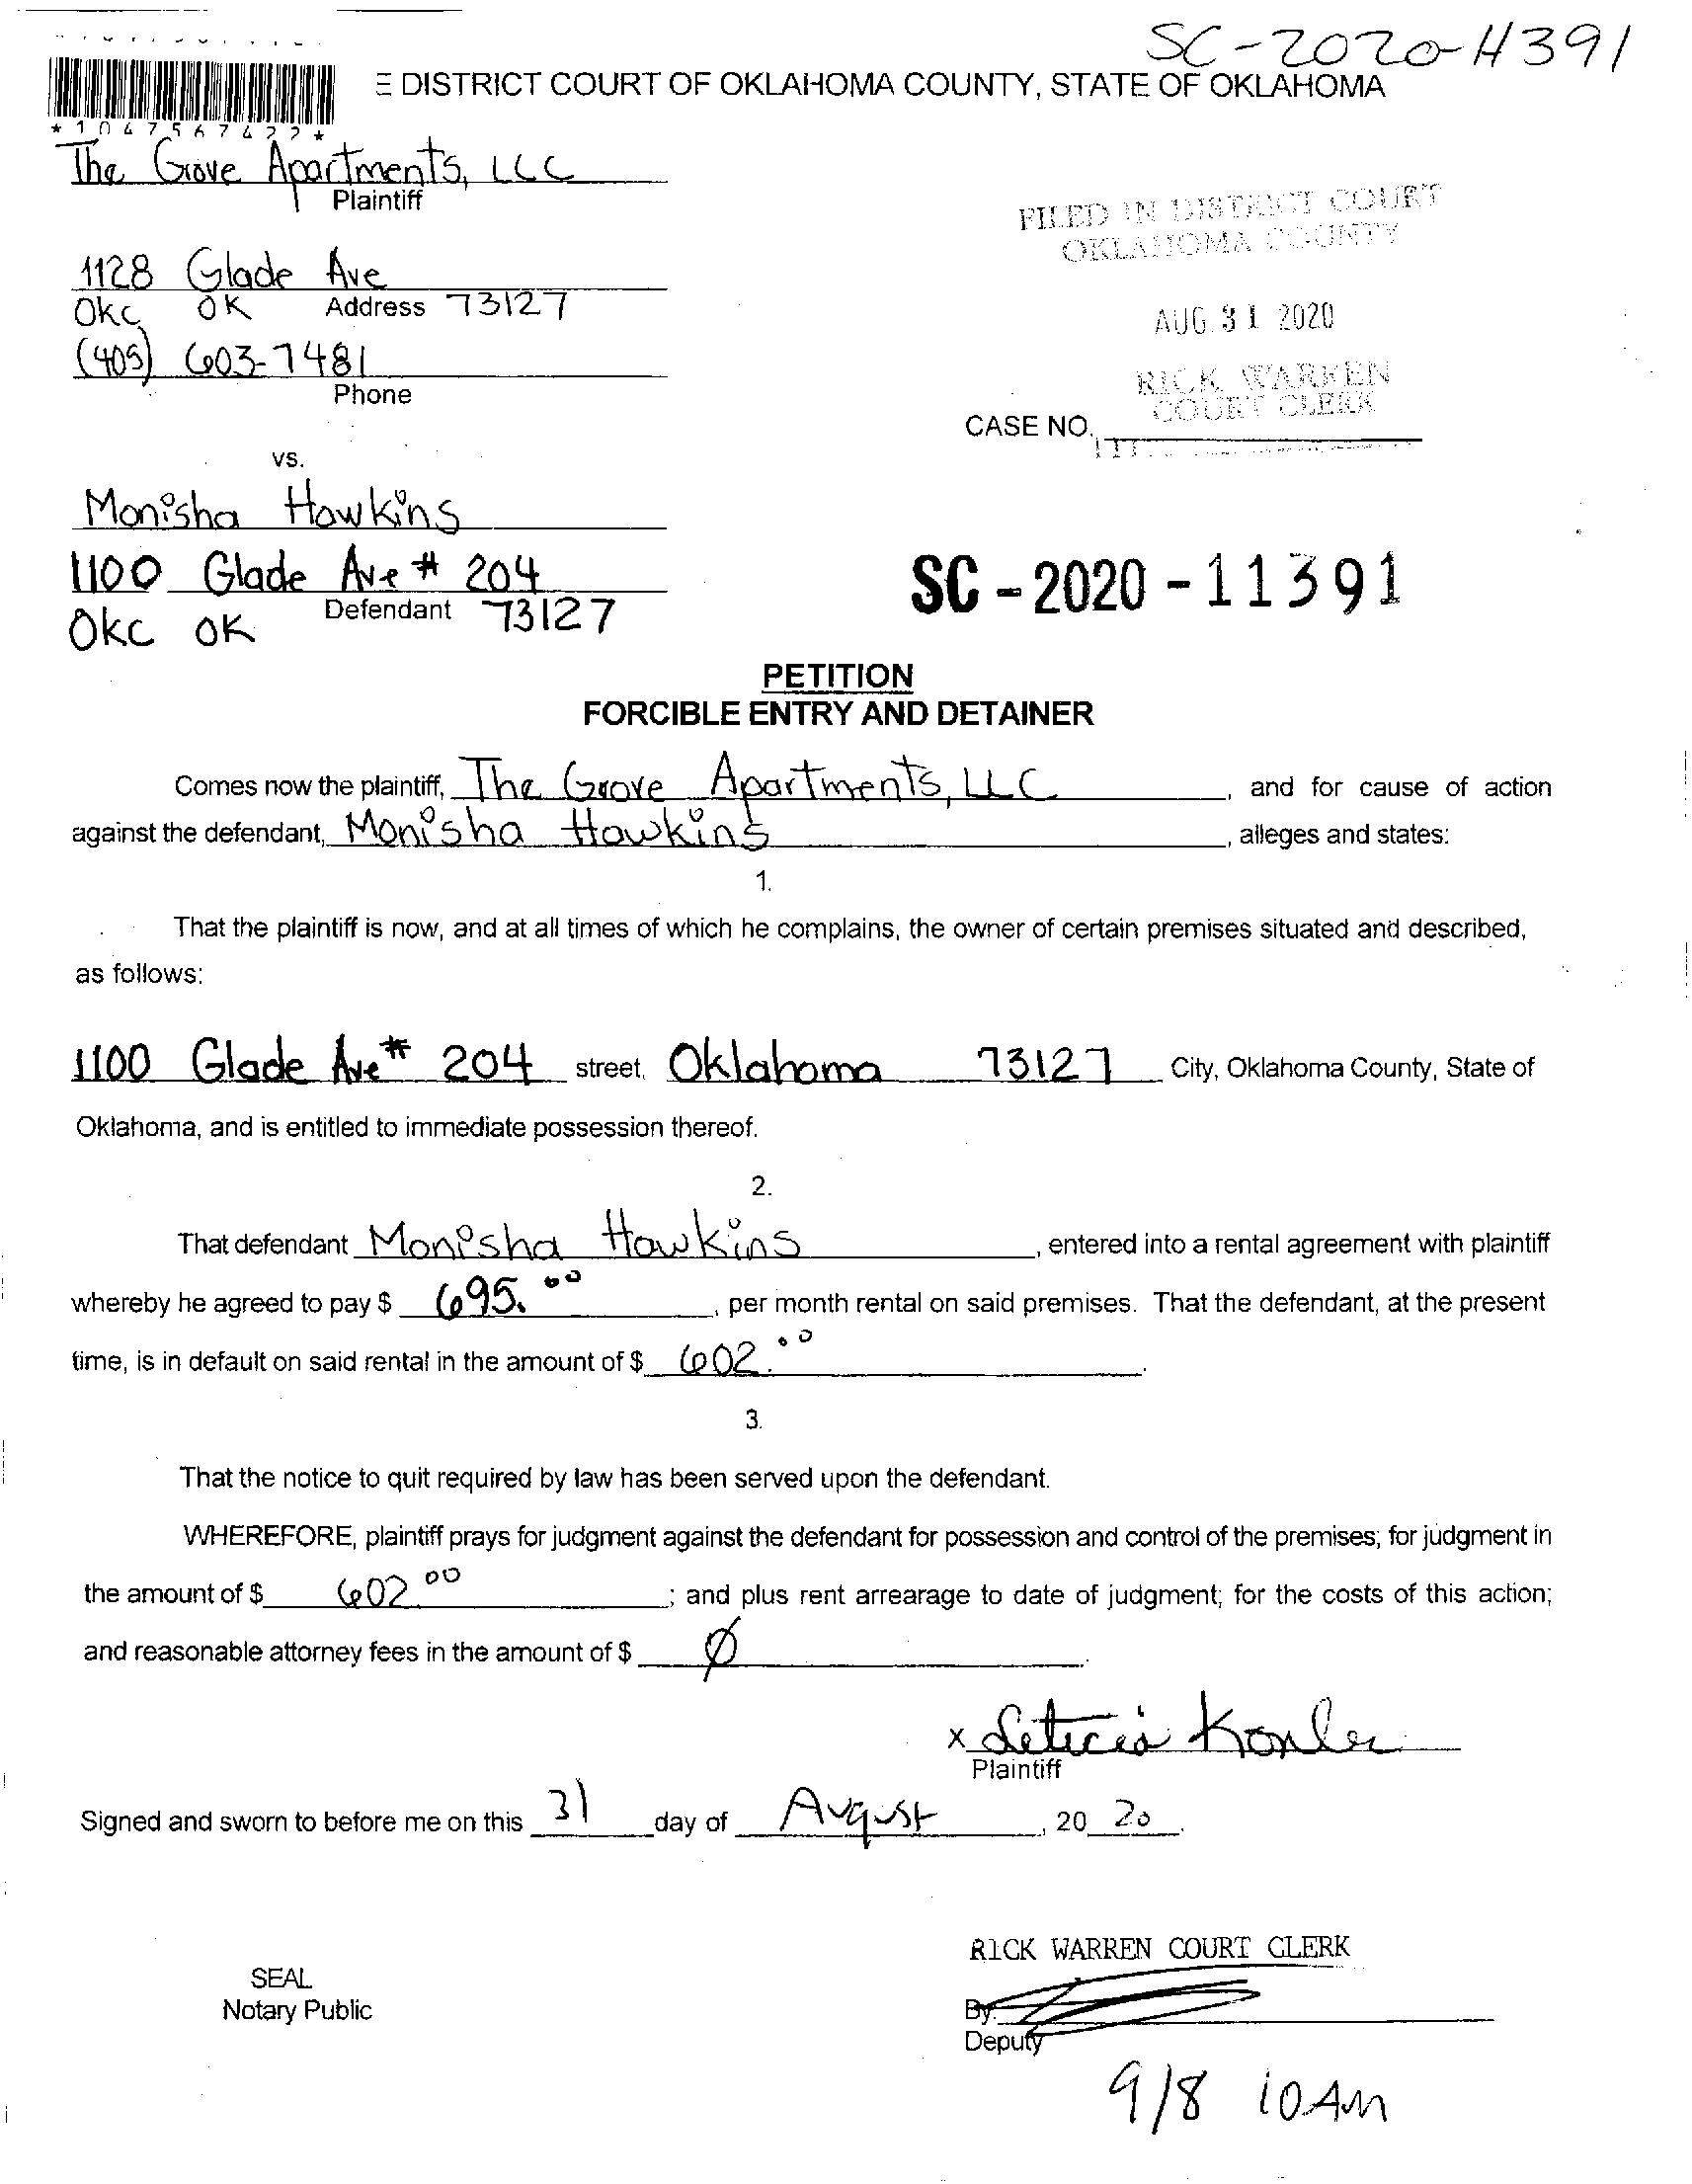 SC-2020-11391
E DISTRICT COURT OF OKLAHOMA COUNTY, STATE OF OKLAHOMA
*1047567422*
The Grove Apartments, LLC
Plaintiff
FILED IN DISTRICT COURT
OKLAHOMA COUNTY
1128 Glade Ave
OKC OK Address 73127
AUG 31 2020
(405) 603-7481
Phone
RICK WARREN
COURT CLERK
CASE NO.
vs.
Monisha Hawkins
1100 Glade Ave # 204
Defendant 73127
OKC OK
SC - 2020 - 11391
PETITION
FORCIBLE ENTRY AND DETAINER
Comes now the plaintiff, The Grove Apartments, LLC, and for cause of action
against the defendant, Monisha Hawkins, alleges and states:
1.
That the plaintiff is now, and at all times of which he complains, the owner of certain premises situated and described,
as follows:
1100 Glade Ave # 204 street, Oklahoma 73127 City, Oklahoma County, State of
Oklahoma, and is entitled to immediate possession thereof.
2.
That defendant Monisha Hawkins, entered into a rental agreement with plaintiff
whereby he agreed to pay $ 695.00, per month rental on said premises. That the defendant, at the present
time, is in default on said rental in the amount of $ 602.00.
3.
That the notice to quit required by law has been served upon the defendant.
WHEREFORE, plaintiff prays for judgment against the defendant for possession and control of the premises; for judgment in
the amount of $ 602.00; and plus rent arrearage to date of judgment; for the costs of this action;
and reasonable attorney fees in the amount of $ Ø.
x Leticia
Plaintiff
Signed and sworn to before me on this 31 day of August, 20 20.
RICK WARREN COURT CLERK
SEAL
Notary Public
By:
Deputy
9/8 10AM